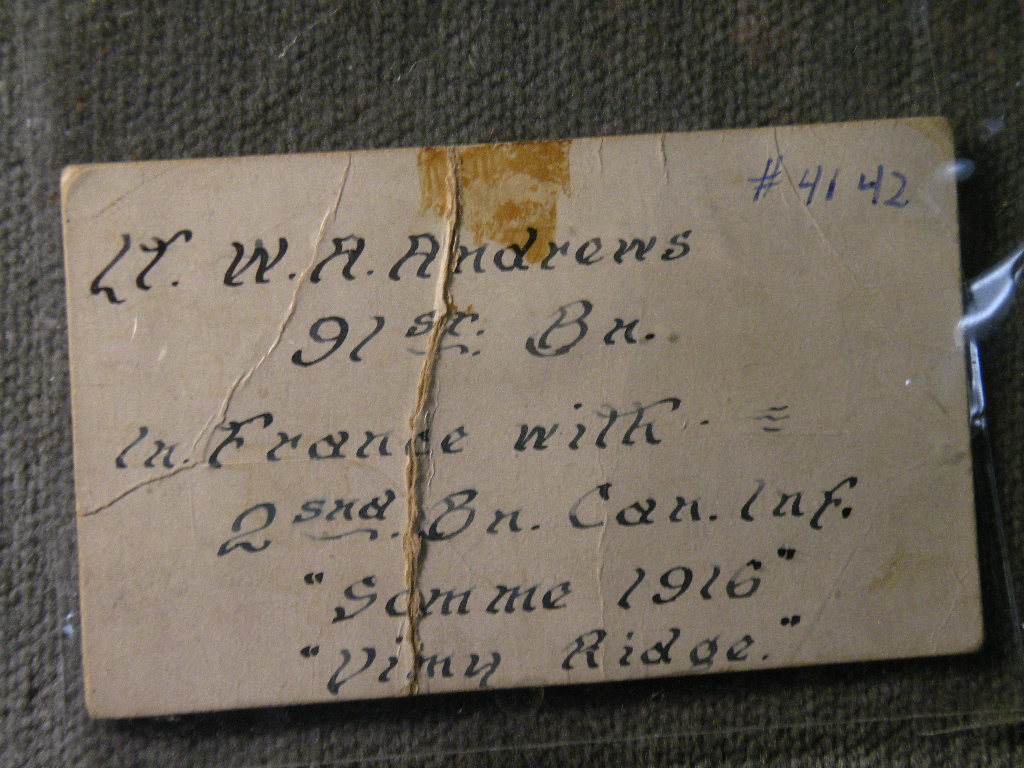 # 4142
Lt. W. A. Andrews
91st. Bn.
In. France with. =
2snd. Bn. Can. Inf.
"Somme 1916"
"Vimy Ridge."